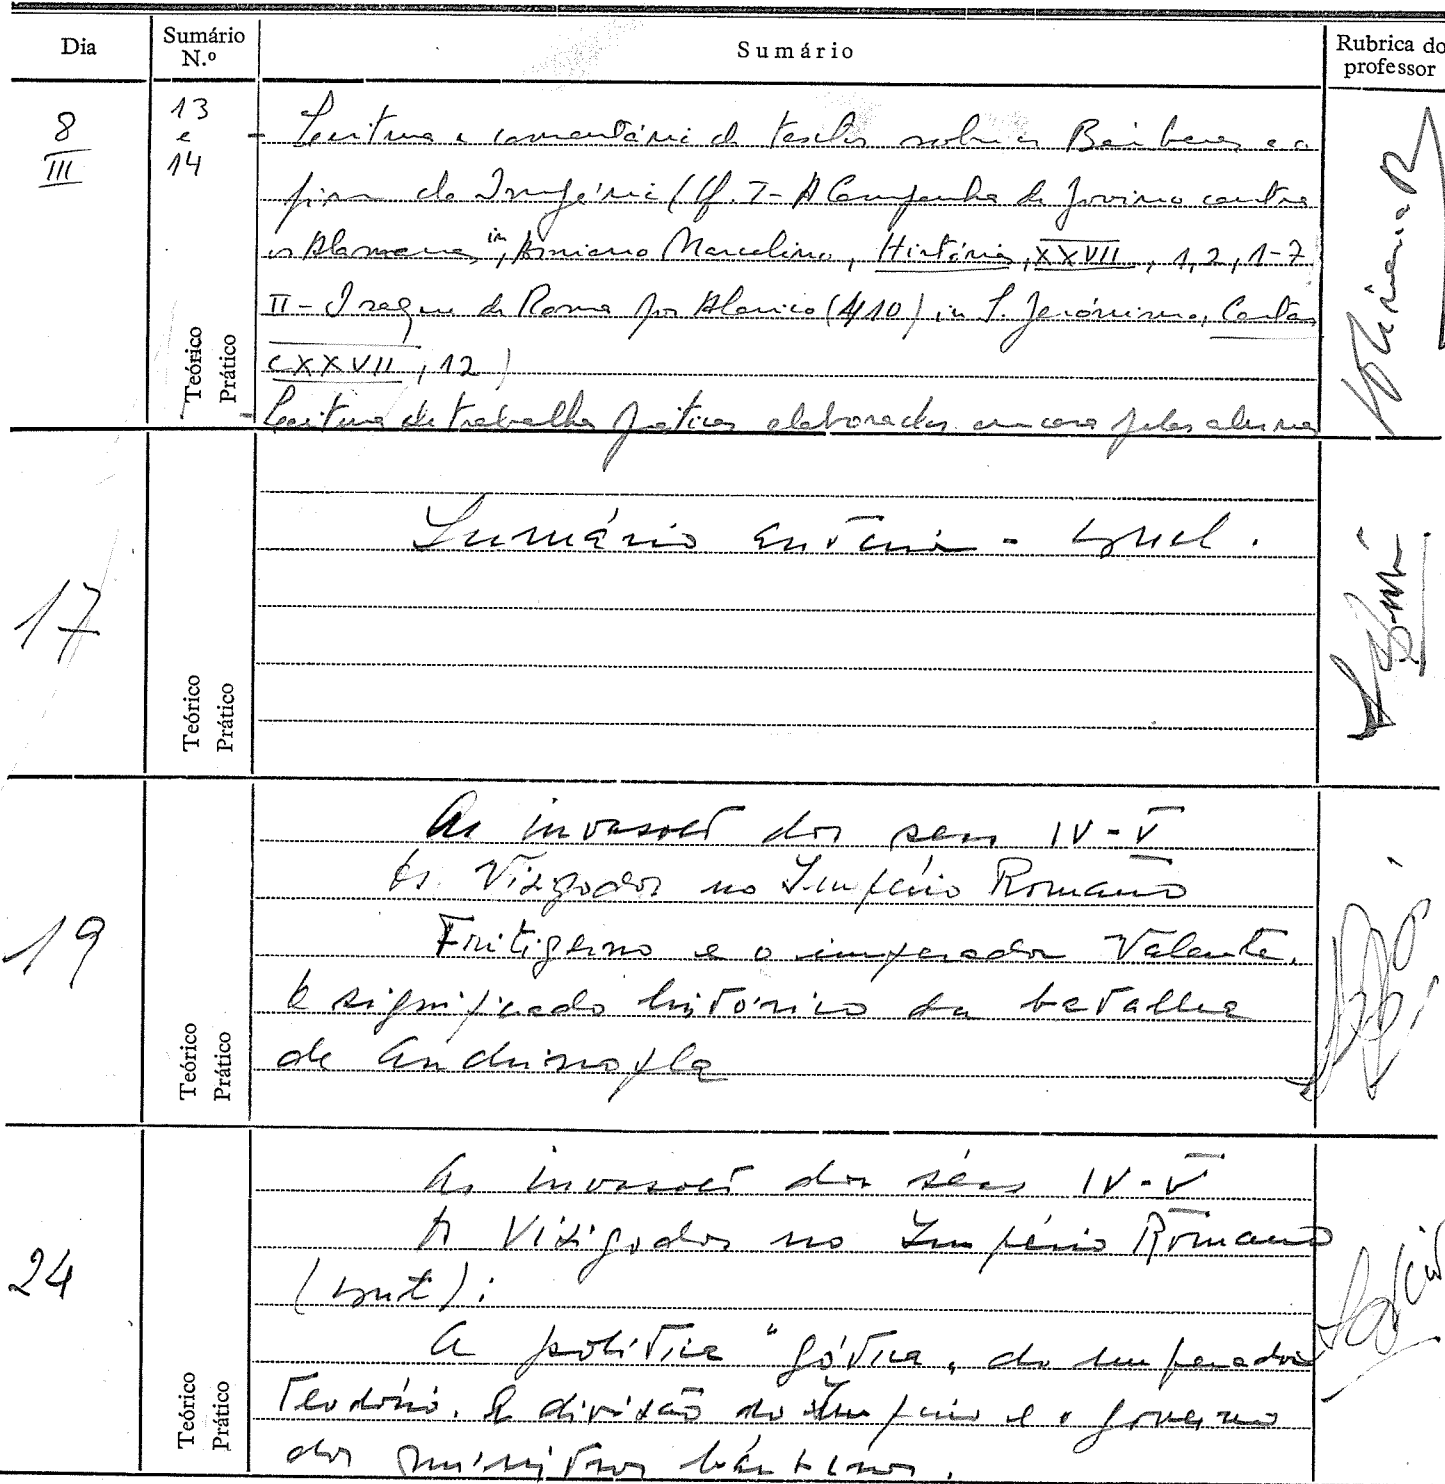 Dia
Sumário N.º
Sumário
Rubrica do professor
8
III
13
e
14
Teórico
Prático
- Leitura e comentário de textos sobre os Bárbaros e o
fim do Império (Cf. I - A Campanha de Jovino contra
os Alamanos, in, Amiano Marcelino, História, XXVII, 1, 2, 1-7
II - O saque de Roma por Alarico (410) in S. Jerónimo, Cartas
CXXVII, 12)
- Leitura de trabalhos práticos elaborados em casa pelos alunos
17
Teórico
Prático
Sumário anterior - Concl.
19
Teórico
Prático
As invasões dos secs IV-V
Os Visigodos no Império Romano
Fritigerno e o imperador Valente.
O significado histórico da batalha
de Andrinopla
24
Teórico
Prático
As invasões dos sécs IV-V
Os Visigodos no Império Romano
(Cont):
A política "gótica" do imperador
Teodósio. A divisão do Império e o governo
dos ministros bárbaros.